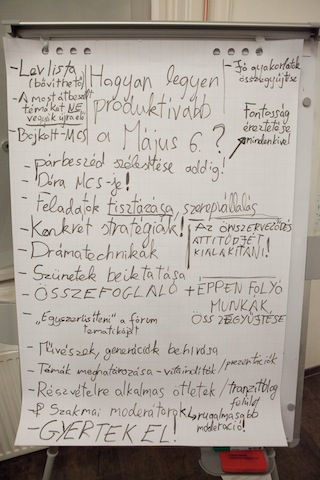 - Lev lista
(bővíthető)
- A most átbeszélt
témákat NE
vegyük újra elő
- Bojkott-MCS
Hogyan legyen
produktívabb
a Május 6.?
- Jó gyakorlatok
összegyűjtése
Fontosság
éreztetése
mindenkivel
- párbeszéd szélesítése addig!
- Dóra MCS-je!
- Feladatok tisztázása, szerepvállalás
- Konkrét stratégiák!
AZ ÖNSZERVEZŐDÉS
ATTITŰDJÉT
KIALAKÍTANI!
- Drámatechnikák
- Szünetek beiktatása
- ÖSSZEFOGLALÓ + ÉPPEN FOLYÓ
MUNKÁK
ÖSSZEGYŰJTÉSE
- „Egyszerűsíteni" a fórum
tematikáját
- Művészek, generációk behívása
- Témák meghatározása - vitaindítók / prezentációk
- Részvételre alkalmas ötletek / tranzitblog
felület
- Szakmai moderátorok
↳ rugalmasabb
moderáció!
- GYERTEK EL!